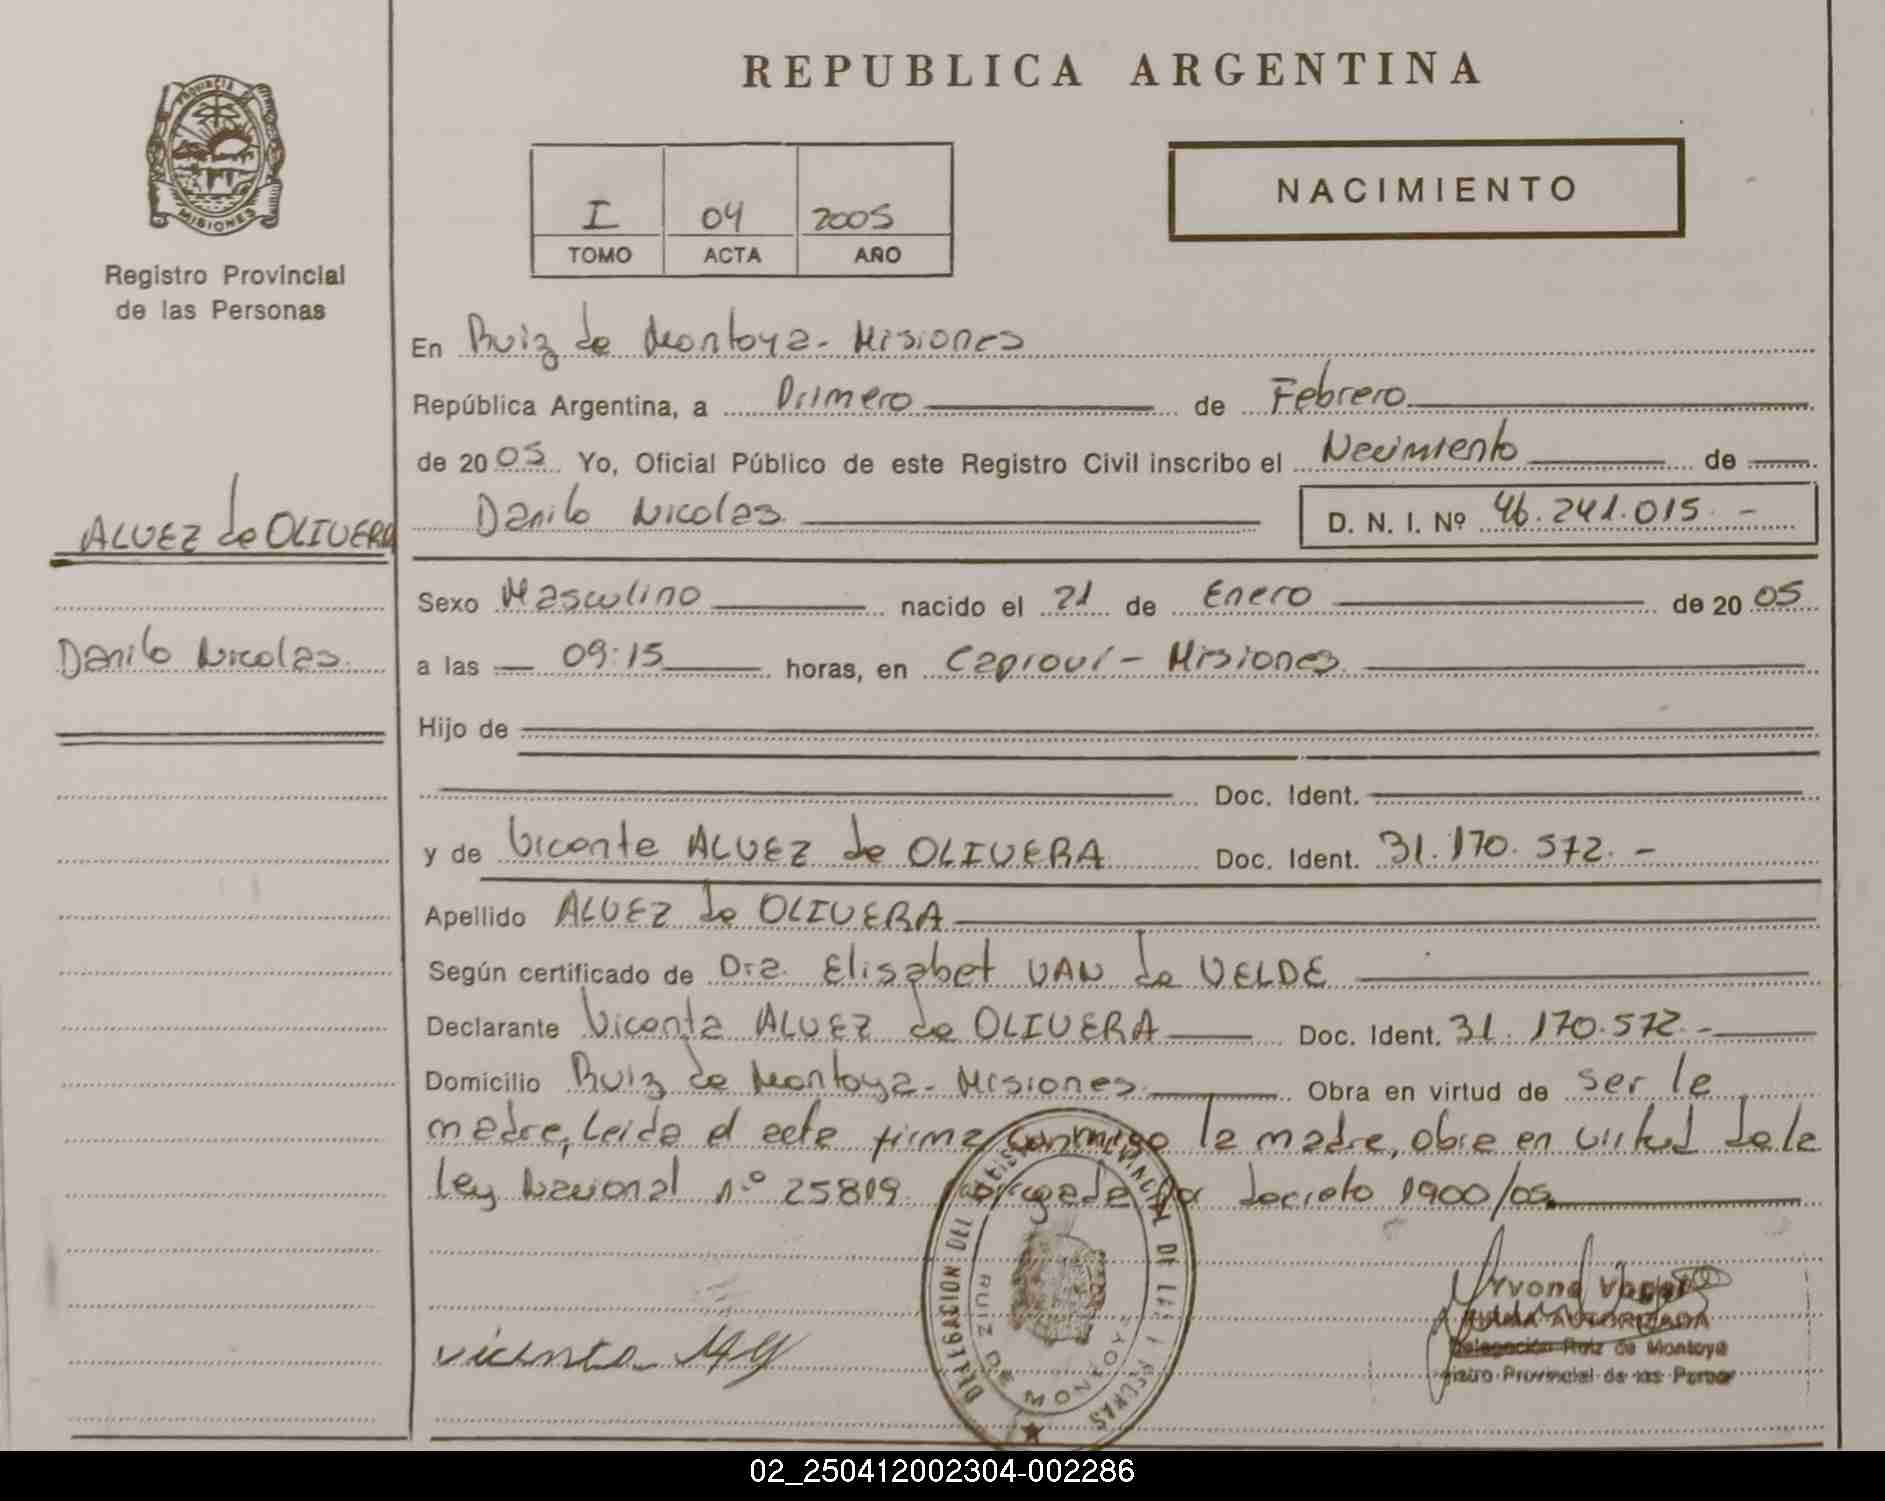 REPUBLICA ARGENTINA
PROVINCIA DE
MISIONES
Registro Provincial
de las Personas
I 04 2005
TOMO ACTA AÑO
NACIMIENTO
En Ruiz de Montoya - Misiones
República Argentina, a Primero de Febrero
de 2005 Yo, Oficial Público de este Registro Civil inscribo el Nacimiento de
ALVEZ de OLIVERA
Danilo Nicolas D. N. I. Nº 46.241.015 -
Sexo Masculino nacido el 21 de Enero de 2005
Danilo Nicolas
a las 09:15 horas, en Capioví - Misiones
Hijo de
Doc. Ident.
y de Vicenta ALVEZ de OLIVERA Doc. Ident. 31.170.572. -
Apellido ALVEZ de OLIVERA
Según certificado de Dra. Elisabet VAN de VELDE
Declarante Vicenta ALVEZ de OLIVERA Doc. Ident. 31.170.572. -
Domicilio Ruiz de Montoya - Misiones Obra en virtud de ser la
madre, leida el acta firma conmigo la madre, obra en virtud de la
ley Nacional nº 25819 por decreto 1900/04
DELEGACION DEL REGISTRO PROVINCIAL DE LAS PERSONAS
RUIZ DE MONTOYA
vicenta
Yvone
FIRMA AUTORIZADA
Delegación Ruiz de Montoya
Provincial de las
02_250412002304-002286